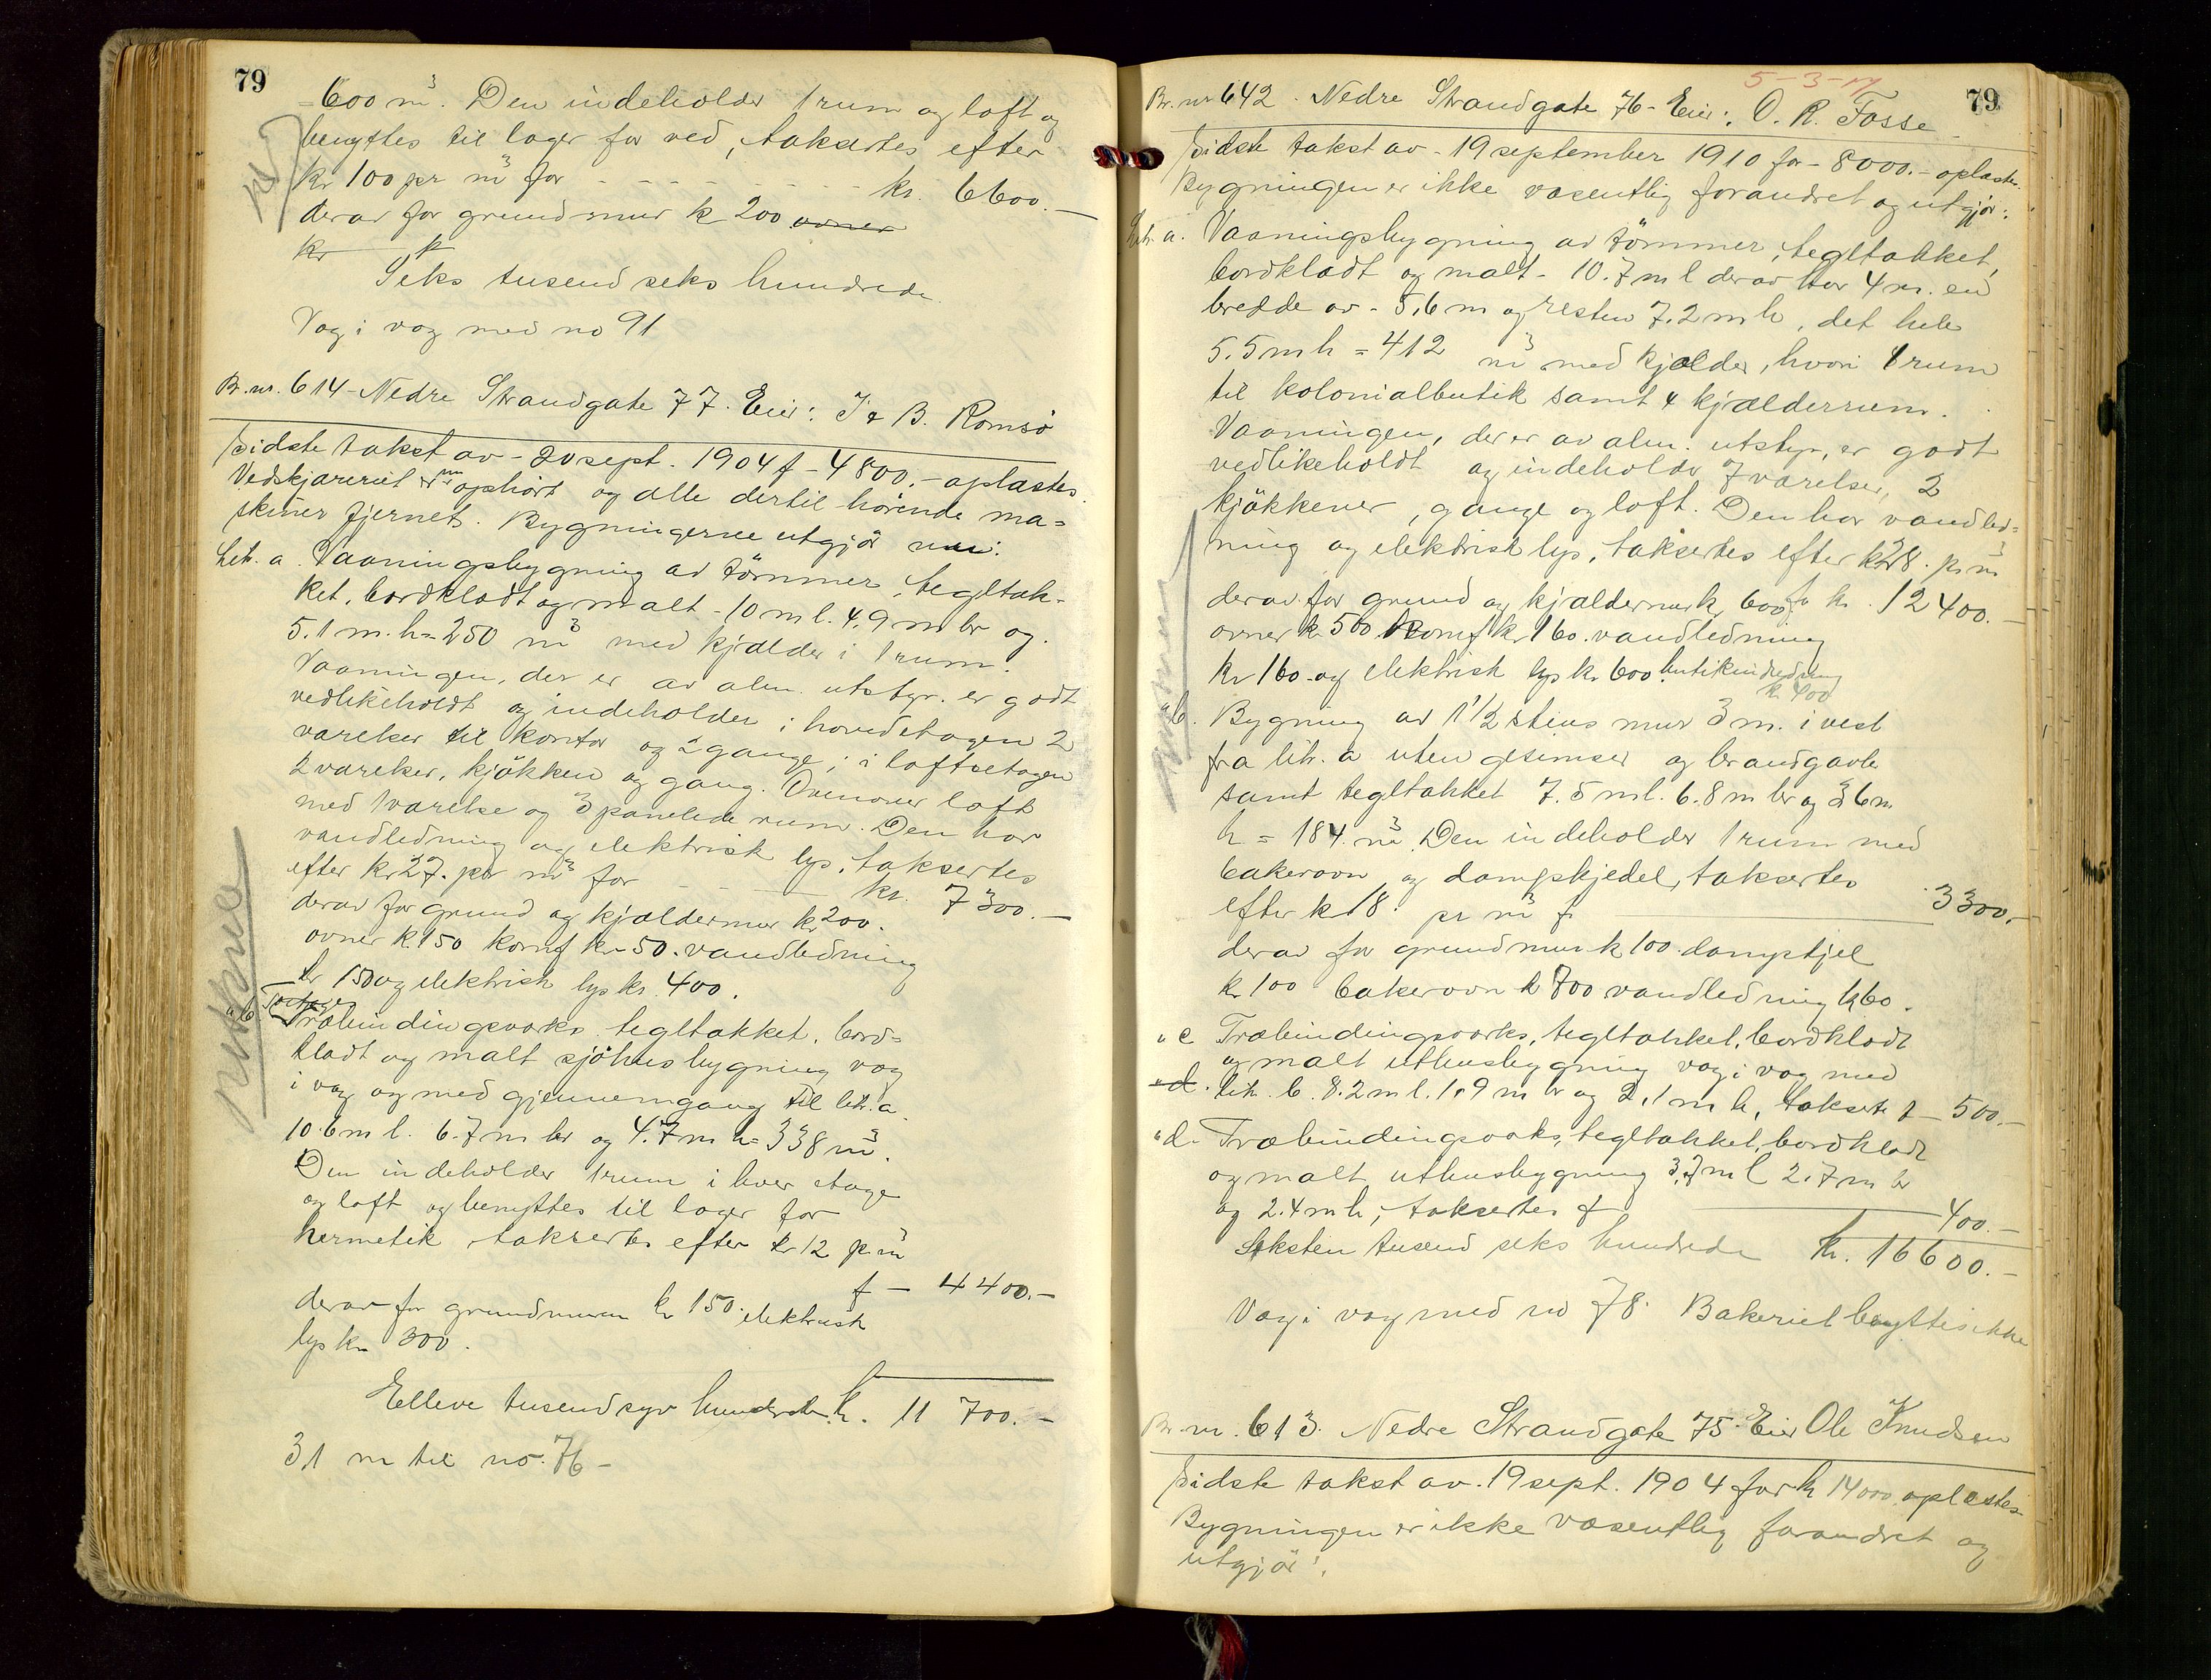 79
= 600 m³. Den indeholder 1 rum og loft og
benyttes til lager for ved, takseres efter
kr 100 pr m³ for - - - - - - - kr. 6600.—
derav for grundmur kr 200 ovner
kr k
Seks tusend seks hundrede.
Væg i væg med no 91
Br. nr. 614 - Nedre Strandgate 77. Eier: J & B. Romsö
Sidste takst av - 20 sept. 1904 f - 4800.- oplæstes.
Vedskjæreriet er nu ophört og alle dertil hörende ma=
skiner fjernet. Bygningerne utgjör nu:
Litr. a. Vaaningsbygning av tömmer, tegltak-
ket, bordklædt og malt - 10 m l. 4.9 m br og
5.1 m. h = 250 m³ med kjælder i 1 rum.
Vaaningen, der er av alm. utstyr. er godt
vedlikeholdt og indeholder i hovedetagen 2
værelser til kontor og 2 gange; i loftsetagen
2 værelser, kjökken og gang. Ovenover loft
med 1 værelse og 3 panelede rum. Den har
vandledning og elektrisk lys, taksertes
efter kr 27. per m³ for - - - kr. 7300.—
derav for grund og kjældermur kr 200.
ovner kr. 150 komf kr 50. vandledning
kr 150 og elektrisk lys kr. 400.
" b. Træbindingsverks tegltakket, bord=
klædt og malt sjöhusbygning væg
i væg og med gjennemgang til litr. a.
10.6 m l. 6.7 m br og 4.7 m h = 338 m³.
Den indeholder 1 rum i hver etage
og loft og benyttes til lager for
hermetik taksertes efter kr 12 pr m³
f — 4400.—
derav for grundmuren kr 150. elektrisk
lys kr 300.
Elleve tusend syv hundrede kr. 11 700.—
3,1 m til no. 76 -
79
5-3-17
Br. nr 642. Nedre Strandgate 76 - Eier: O. R. Fosse
Sidste takst av - 19 september 1910 for - 8000.- oplæstes.
Bygningen er ikke væsentlig forandret og utgjör:
Litr. a. Vaaningsbygning av tömmer, tegltakket,
bordklædt og malt - 10.7 m l derav har 4 m. en
bredde av - 5,6 m og resten 7.2 m b, det hele
5.5 m h = 412 m³ med kjælder, hvori 1 rum
til kolonialbutik samt 4 kjælderrum.
Vaaningen, der er av alm. utstyr, er godt
vedlikeholdt og indeholder 7 værelser, 2
kjökkener, gange og loft. Den har vandled=
ning og elektrisk lys, taksertes efter kr 28. pr m³
derav for grund og kjældermur k 600 for kr. 12400.—
ovner kr 500 komf kr 160. vandledning
kr 160 - og elektrisk lys kr 600. butikindredning
kr. 400
" b. Bygning av 1 1/2 stens mur 3 m. i vest
fra litr. a uten gesimser og brandgavle
samt tegltakket 7.5 m l. 6.8 m br og 3.6 m
h = 184. m³. Den indeholder 1 rum med
bakerovn og dampkjedel, taksertes
efter kr 18. pr m³ f. — 3300.—
derav for grundmur kr 100. dampkjel
kr 100 bakerovn kr 700 vandledning kr 60.
" c Træbindingsverks, tegltakket, bordklædt
og malt uthusbygning væg i væg med
" d. litr. b. 8.2 m l. 1.9 m br og 2.1 m h, taksert f — 500.—
" d. Træbindingsverks, tegltakket, bordklædt
og malt uthusbygning 3,7 m l 2.7 m br
og 2.4 m h, taksertes f — 400.—
Seksten tusend seks hundrede kr. 16600.—
Væg i væg med no 78. Bakeriet benyttes ikke
Br. nr. 613. Nedre Strandgate 75. Eier Ole Knudsen
Sidste takst av. 19 sept. 1904 for kr 14000 oplæstes.
Bygningen er ikke væsentlig forandret og
utgjör: